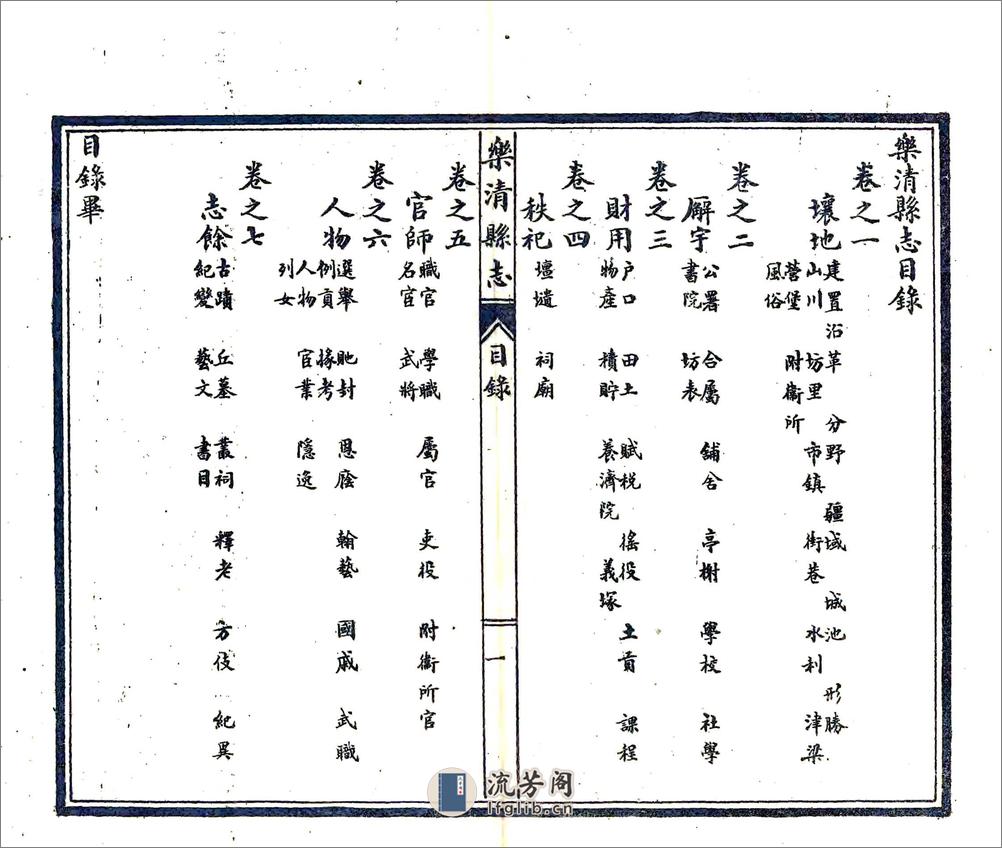 樂清縣志目錄
卷之一
壤地 建置沿革 分野 疆域 城池 形勝
山川 坊里 市鎮 街巷 水利 津梁
營堡 附衞所
風俗
卷之二
廨宇 公署 合屬 舖舍 亭榭 學校 社學
書院 坊表
卷之三
財用 户口 田土 賦税 徭役 土貢 課程
物產 積貯 養濟院 義塚
卷之四
秩祀 壇壝 祠廟
樂清縣志
目錄
一
卷之五
官師 職官 學職 屬官 吏役 附衞所官
名宦 武將
卷之六
人物 選舉 馳封 恩廕 翰藝 國戚 武職
例貢 掾考
人物 官業 隱逸
列女
卷之七
志餘 古蹟 丘墓 叢祠 釋老 方伎 紀異
紀變 藝文 書目
目錄畢
流芳阁
lfglib.cn